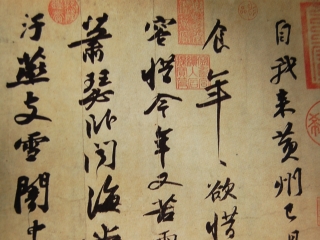 自我來黃州已
食年〻欲惜
容惜今年又苦雨
蕭瑟卧聞海
汙燕支雪闇中